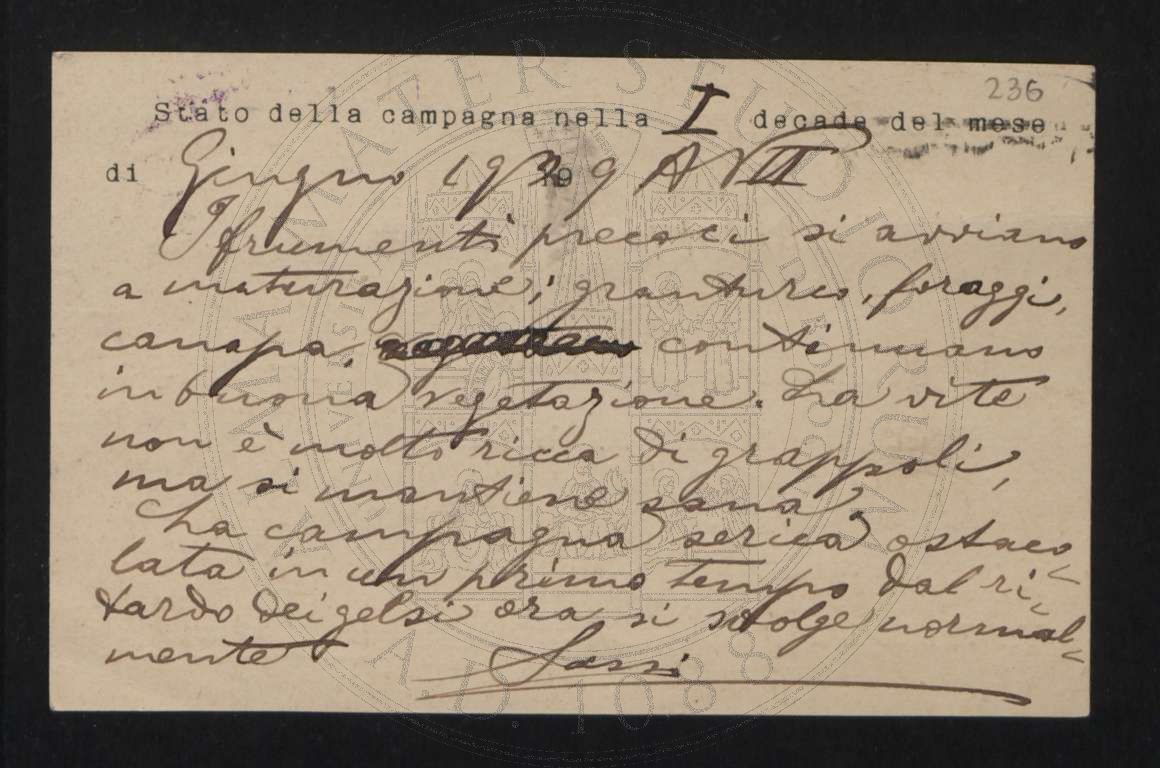 236
Stato della campagna nella I decade del mese
di Giugno 1939 A XVII
I frumenti precoci si avviano
a maturazione; granturco, foraggi,
canapa, continuano
in buona vegetazione. La vite
non è molto ricca di grappoli,
ma si mantiene sana.
La campagna serica ostaco-
lata in un primo tempo dal ri-
tardo dei gelsi ora si svolge normal-
mente
Sassi
ALMA MATER STUDIORUM
A.D. 1088